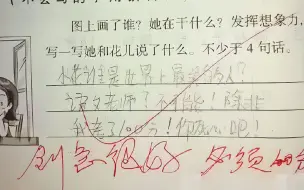 图上画了谁？她在干什么？发挥想象力，
写一写她和花儿说了什么。不少于4句话。
小花谁是世界上最美的人？
语文老师？不可能！除非
我考了100分！你放心吧！
创意很好 必须